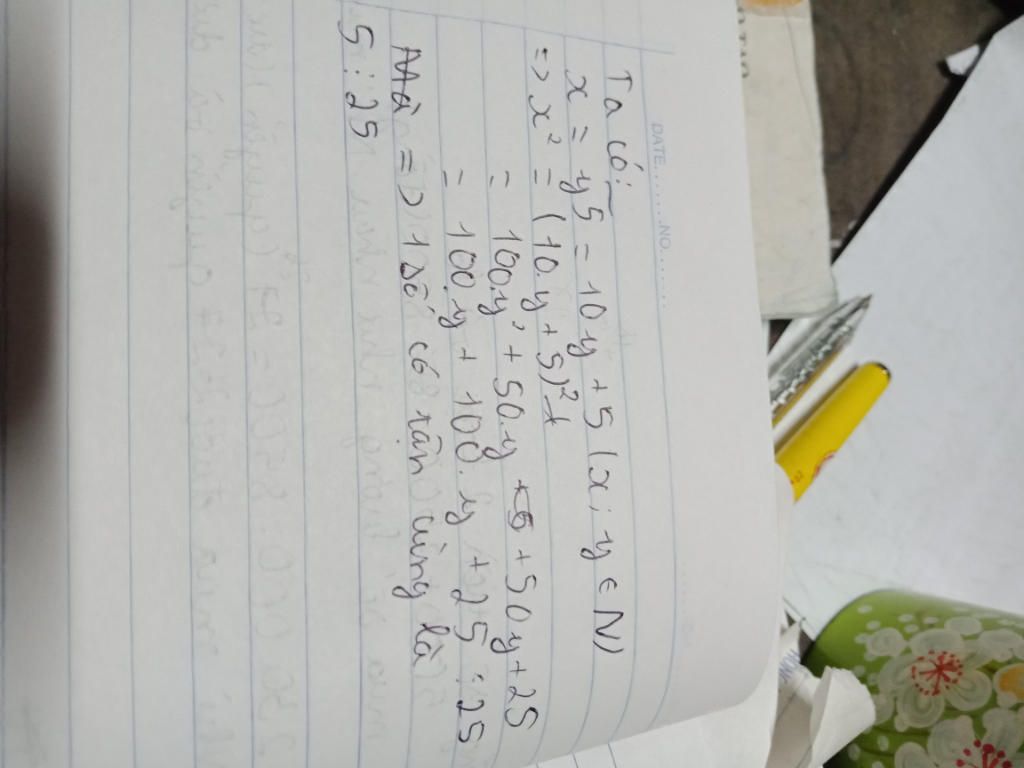 DATE.......NO.......
Ta có:
x = y5 = 10y + 5 (x; y ∈ N)
=> x² = (10.y + 5)²
= 100.y² + 50.y + 50y + 25
= 100.y + 100.y + 25 ⋮ 25
Mà => 1 số có tận cùng là
5 ⋮ 25